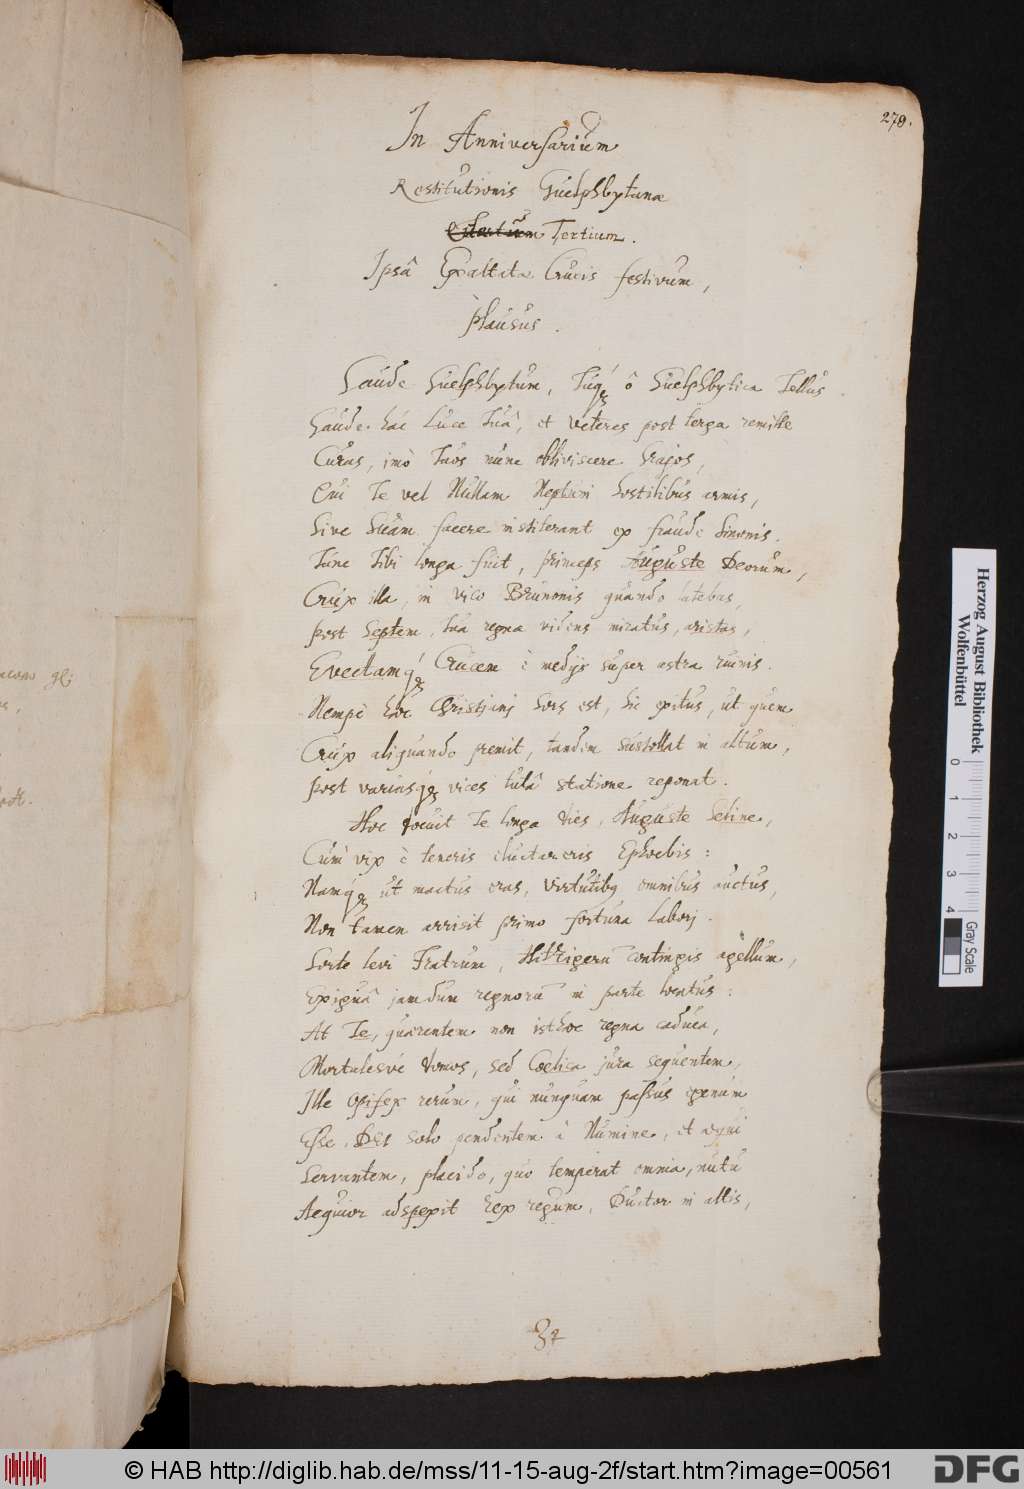 278.
In Anniversarium
Restitutionis Guelphbytanæ
Tertium.
Ipsâ Exaltatæ Crucis festivum,
Plausus.
Gaude Guelphbytum, Tuq; ô Guelphbytica Tellus
Gaude hâc Luce Tuâ, et veteres post terga remitte
Curas, imò Tuos nunc obliviscere
Qui Te vel Nullam Neptuni hostilibus armis,
Sive facere institerant ex fraude Sinonis.
Tunc Tibi longa fuit, princeps Auguste Deorum,
Crux illa, in vico Brunonis quando latebas,
Post Septem, tua regna videns miratus, aristas,
Evectamq; Crucem è medijs super astra ruinis.
Nempè hæc Christianj sors est, hic exitus, ut quem
Crux aliquando premit, tandem sustollat in altum,
Post variasq; vices tutâ statione reponat.
Hoc docuit Te longa dies, Auguste Seline,
Cum vix è teneris eluctareris Ephoebis:
Namq; ut mactus eras, virtutibq omnibus auctus,
Non tamen arrisit primo fortuna laborj.
Sorte levi Fratrum, contingis agellum,
Exiguâ jamdum regnorū in parte locatus:
At Te, quærentem non isthæc regna caduca,
Mortalesvé domos, sed Coelica jura sequentem,
Ille Opifex rerum, qui nunquam passus egenum
Esse, DEI solo pendentem à Numine, et æqui
Servantem, placido, quo temperat omnia, nutu
Aequior adspexit Rex regum, Ductor in altis,
© HAB http://diglib.hab.de/mss/11-15-aug-2f/start.htm?image=00561
DFG
Herzog August Bibliothek
Wolfenbüttel
0 1 2 3 4
Gray Scale